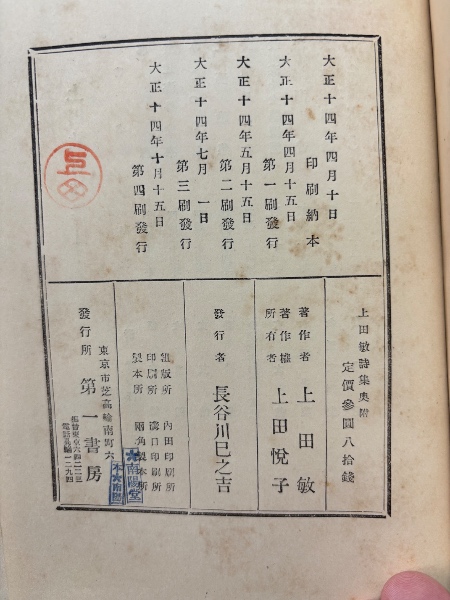 大正十四年四月十日
印刷納本
大正十四年四月十五日
第一刷發行
大正十四年五月十五日
第二刷發行
大正十四年七月一日
第三刷發行
大正十四年十月十五日
第四刷發行
上田敏詩集奥附
定價參圓八拾錢
著作者 上田敏
著作權所有者 上田悦子
發行者 長谷川巳之吉
印刷所 内田印刷所
印刷所 溝口印刷所
製本所 兩角製本所
東京市芝高輪南町六
發行所 第一書房
南陽堂